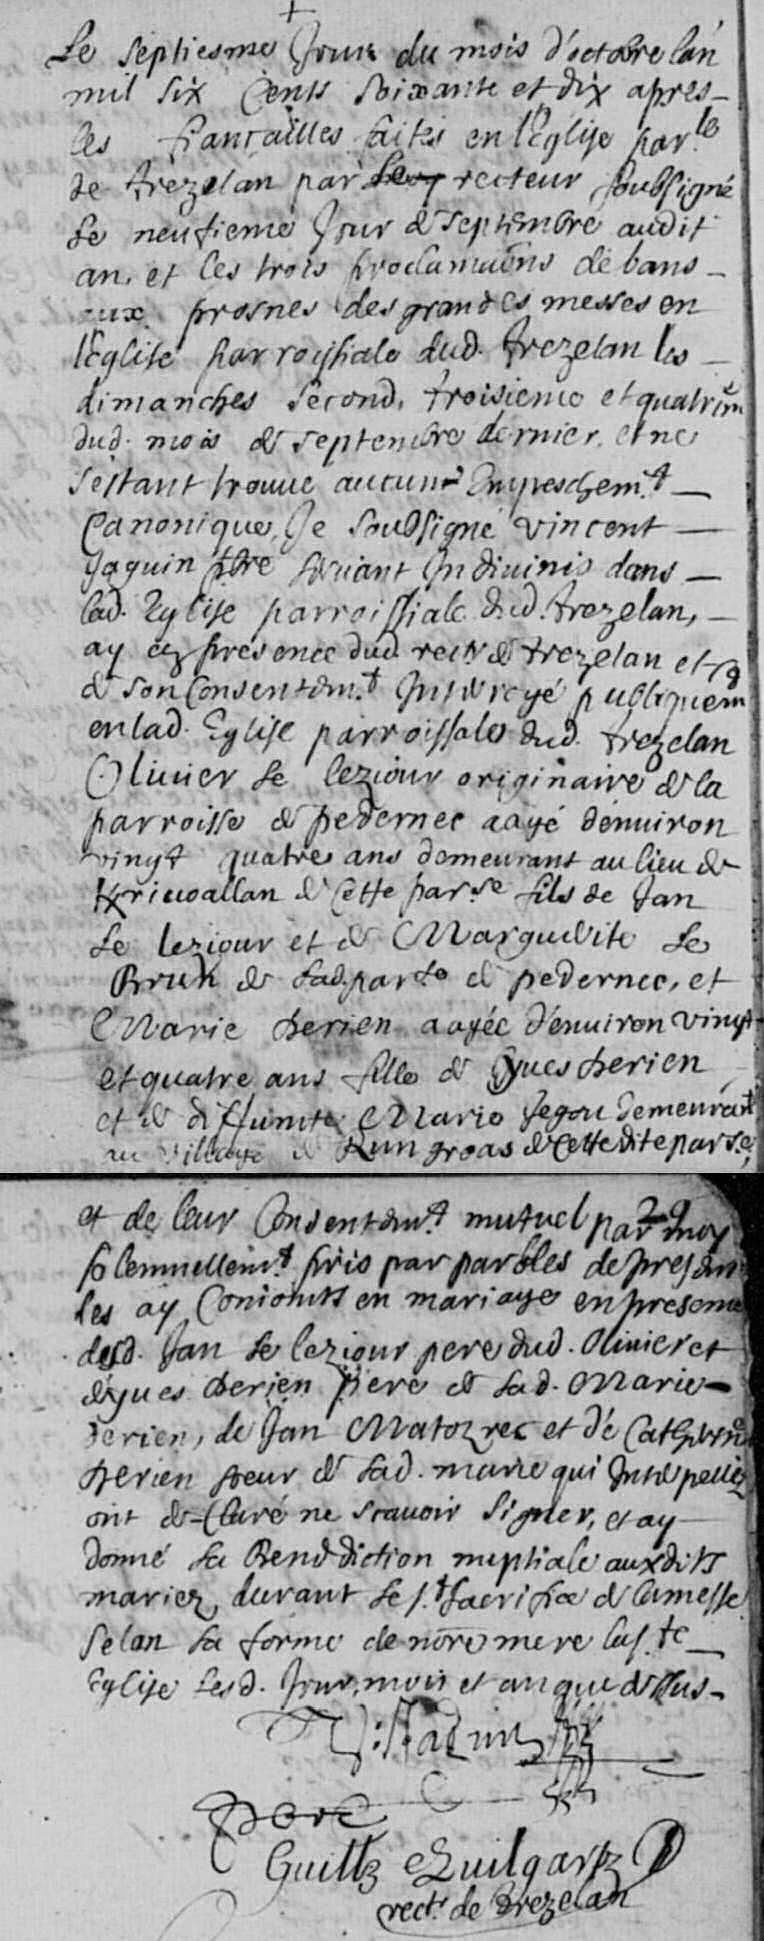 Le septiesme Jour du mois d'octobre l'an
mil six Cents Soixante et dix apres
les fiancailles faites en l'Eglise par.le
de trezelan par recteur soubsigné
le neufieme Jour de septembre audit
an, et les trois proclamaōns de bans
aux prosnes des grandes messes en
l'Eglise parroissiale dud. trezelan les
dimanches second, troisieme et quatriem
dud. mois de septembre dernier, et ne
sestant trouué aucun Empeschem.t
Canonique, Je soubsigné vincent
Jaguin pbre seruant In diuinis dans
lad. Eglise parroissiale dud. trezelan,
ay en presence dud. rectr de trezelan et
de son Consentem.t Interogé publiquem
en lad. Eglise parroissiale dud. trezelan
Oliuier le leziour originaire de la
parroisse de pedernec aagé denuiron
vingt quatres ans demeurant au lieu de
Kriuoallan de Cette par.se fils de Jan
Le leziour et de Marguerite Le
Brun de lad. par.se de pedernec, et
Marie derien aagée d'enuiron vingt
et quatre ans fille de yues derien
et de deffunte Marie Jegou demeurat
au village de Run groas de Cette dite par.se,
29
et de leur Consentem.t mutuel par moy
solemnellem.t pris par parolles de presant
les ay Conioints en mariage en presence
desd. Jan le leziour pere dud. Oliuier et
de yues derien pere de lad. Marie
derien, de Jan Matozrec et de Catherine
derien soeur de lad. marie qui Interpellez
ont declaré ne scauoir signer, et ay
donné la Benediction nuptiale auxdits
mariez durant le s.t sacrifice de la messe
selon la forme de nore mere la s.te
Eglise lesd. Jour, mois et an que dessus
V: Jaguin
pbre
Guill Quilgars
rect.r de Trezelan